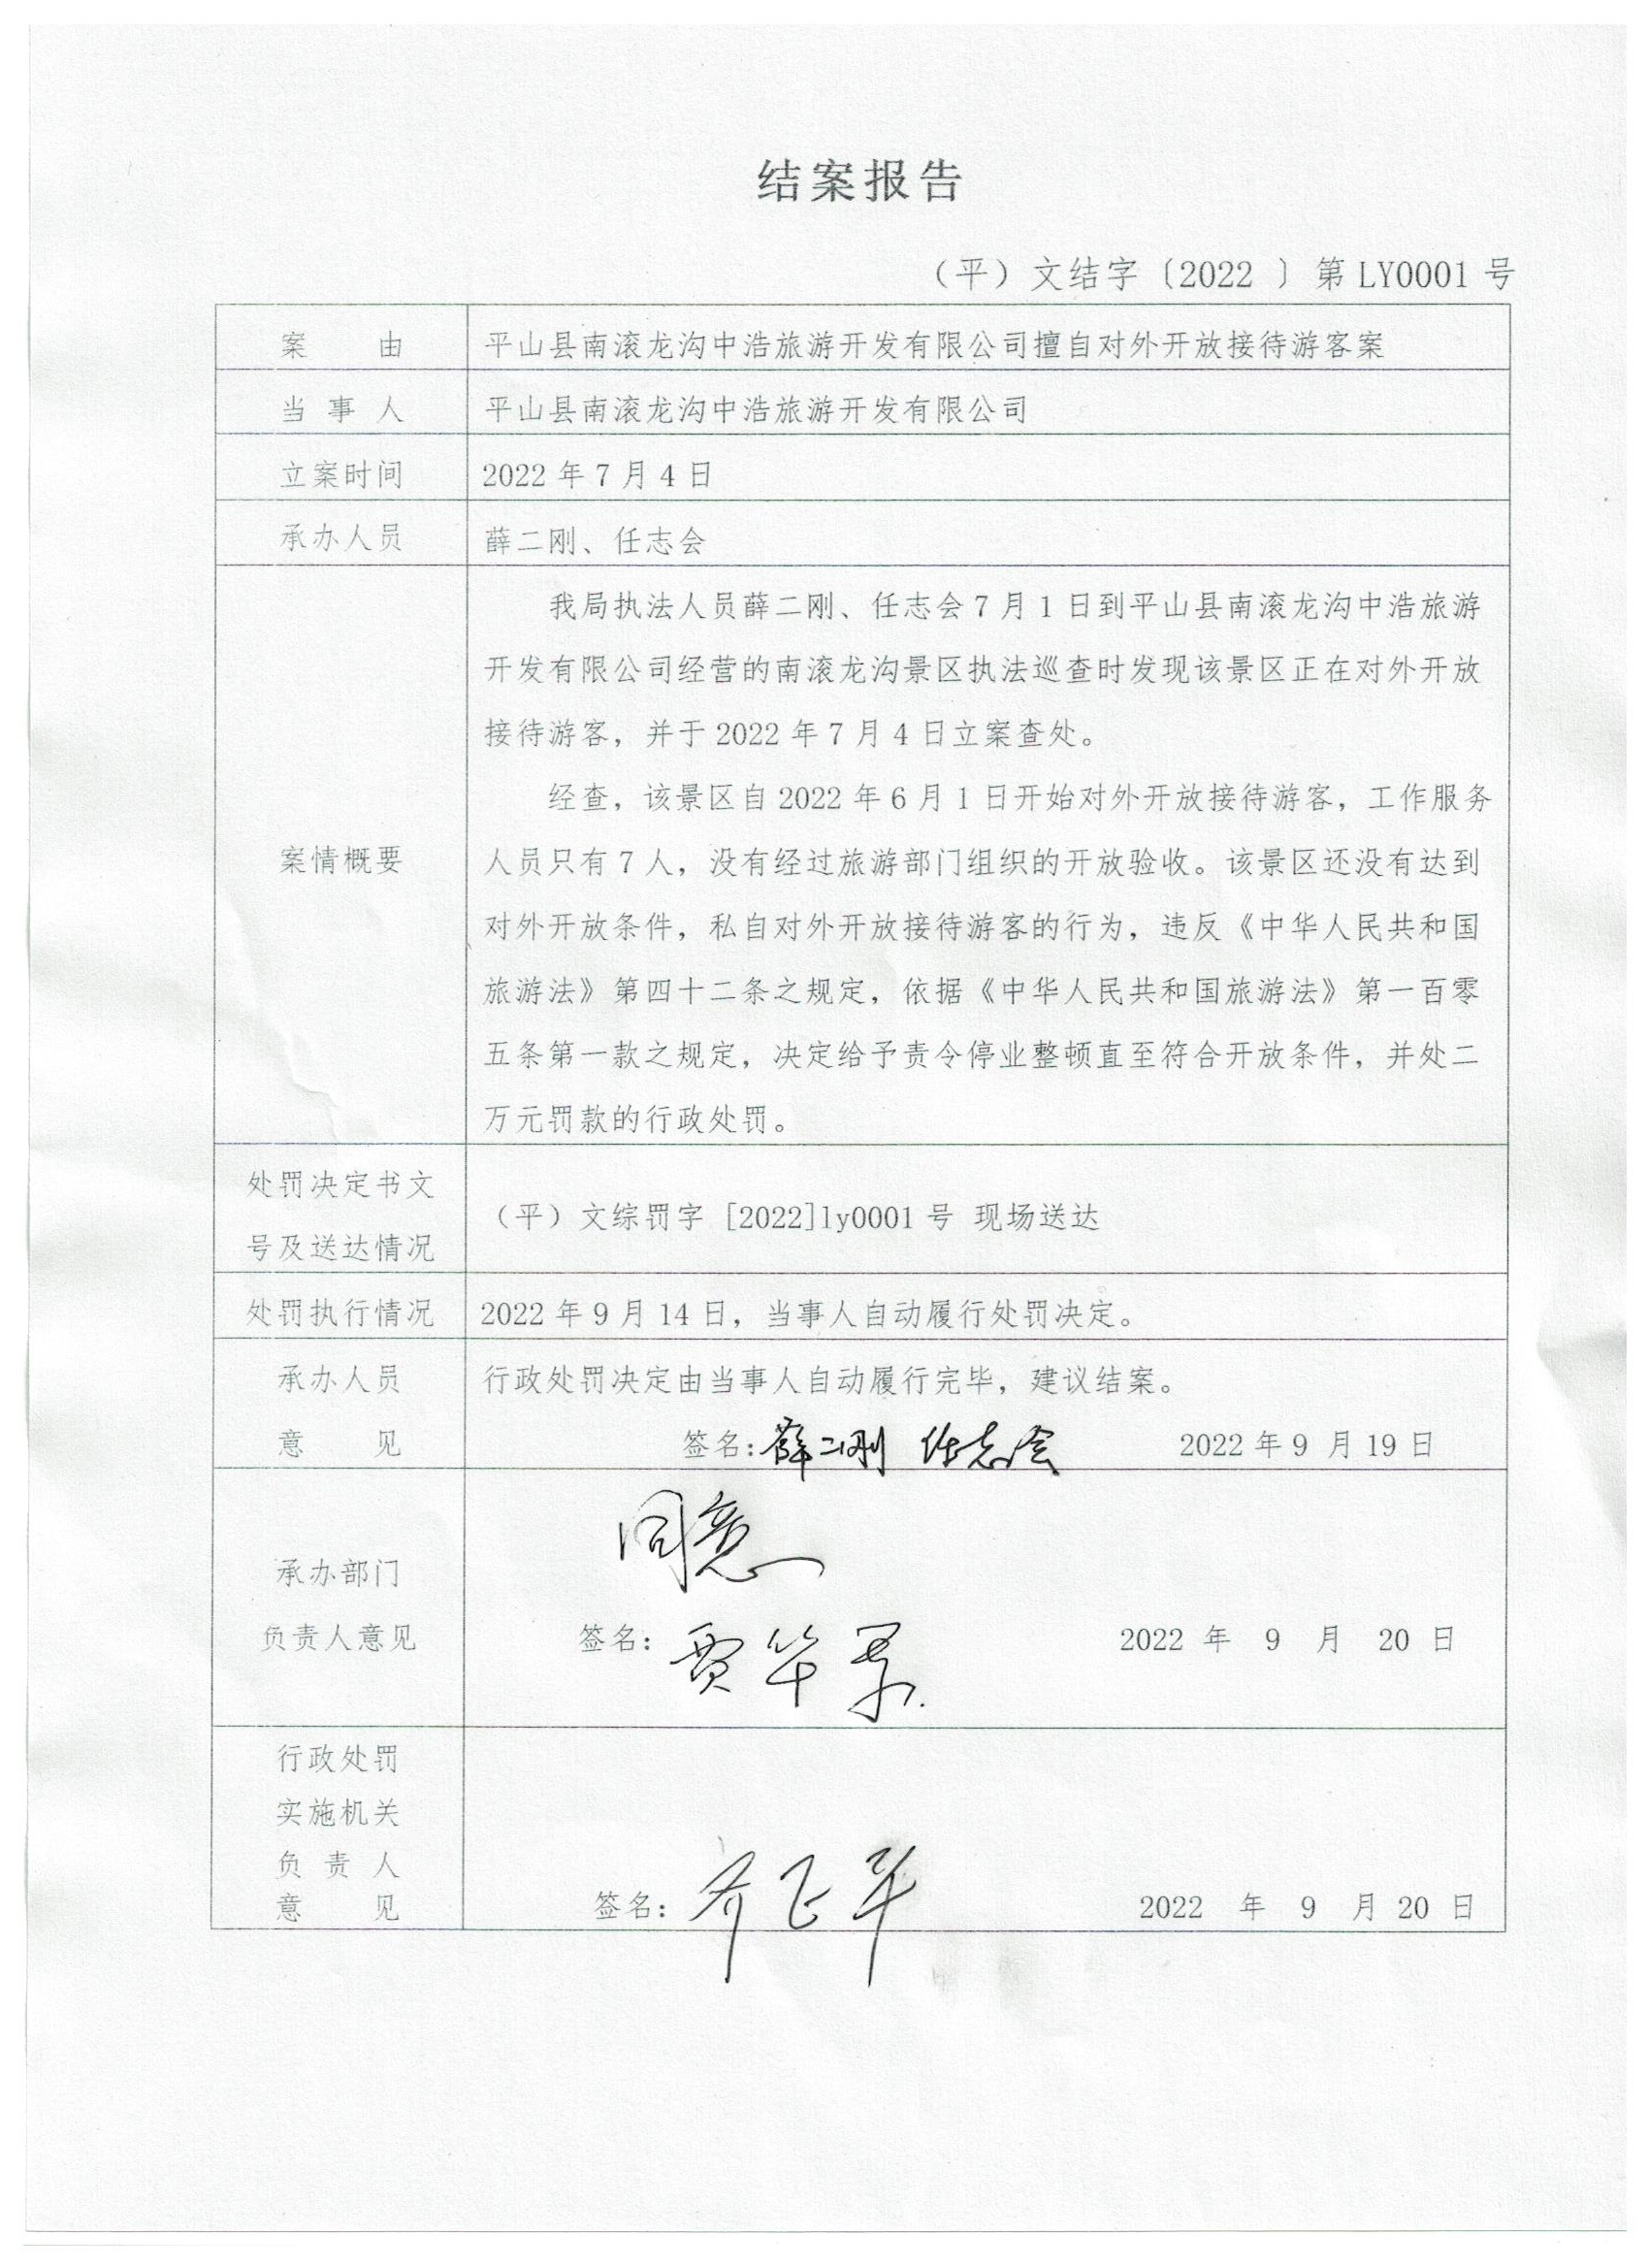 结案报告
（平）文结字〔2022 〕第 LY0001 号
案 由 平山县南滚龙沟中浩旅游开发有限公司擅自对外开放接待游客案
当 事 人 平山县南滚龙沟中浩旅游开发有限公司
立案时间 2022 年 7 月 4 日
承办人员 薛二刚、任志会
我局执法人员薛二刚、任志会 7 月 1 日到平山县南滚龙沟中浩旅游
开发有限公司经营的南滚龙沟景区执法巡查时发现该景区正在对外开放
接待游客，并于 2022 年 7 月 4 日立案查处。
经查，该景区自 2022 年 6 月 1 日开始对外开放接待游客，工作服务
案情概要 人员只有 7 人，没有经过旅游部门组织的开放验收。该景区还没有达到
对外开放条件，私自对外开放接待游客的行为，违反《中华人民共和国
旅游法》第四十二条之规定，依据《中华人民共和国旅游法》第一百零
五条第一款之规定，决定给予责令停业整顿直至符合开放条件，并处二
万元罚款的行政处罚。
处罚决定书文
号及送达情况
（平）文综罚字 [2022]ly0001 号 现场送达
处罚执行情况 2022 年 9 月 14 日，当事人自动履行处罚决定。
承办人员 行政处罚决定由当事人自动履行完毕，建议结案。
意 见 签名：薛二刚 任志会 2022 年 9 月 19 日
同意
承办部门
负责人意见 签名： 2022 年 9 月 20 日
行政处罚
实施机关
负 责 人
意 见 签名： 2022 年 9 月 20 日